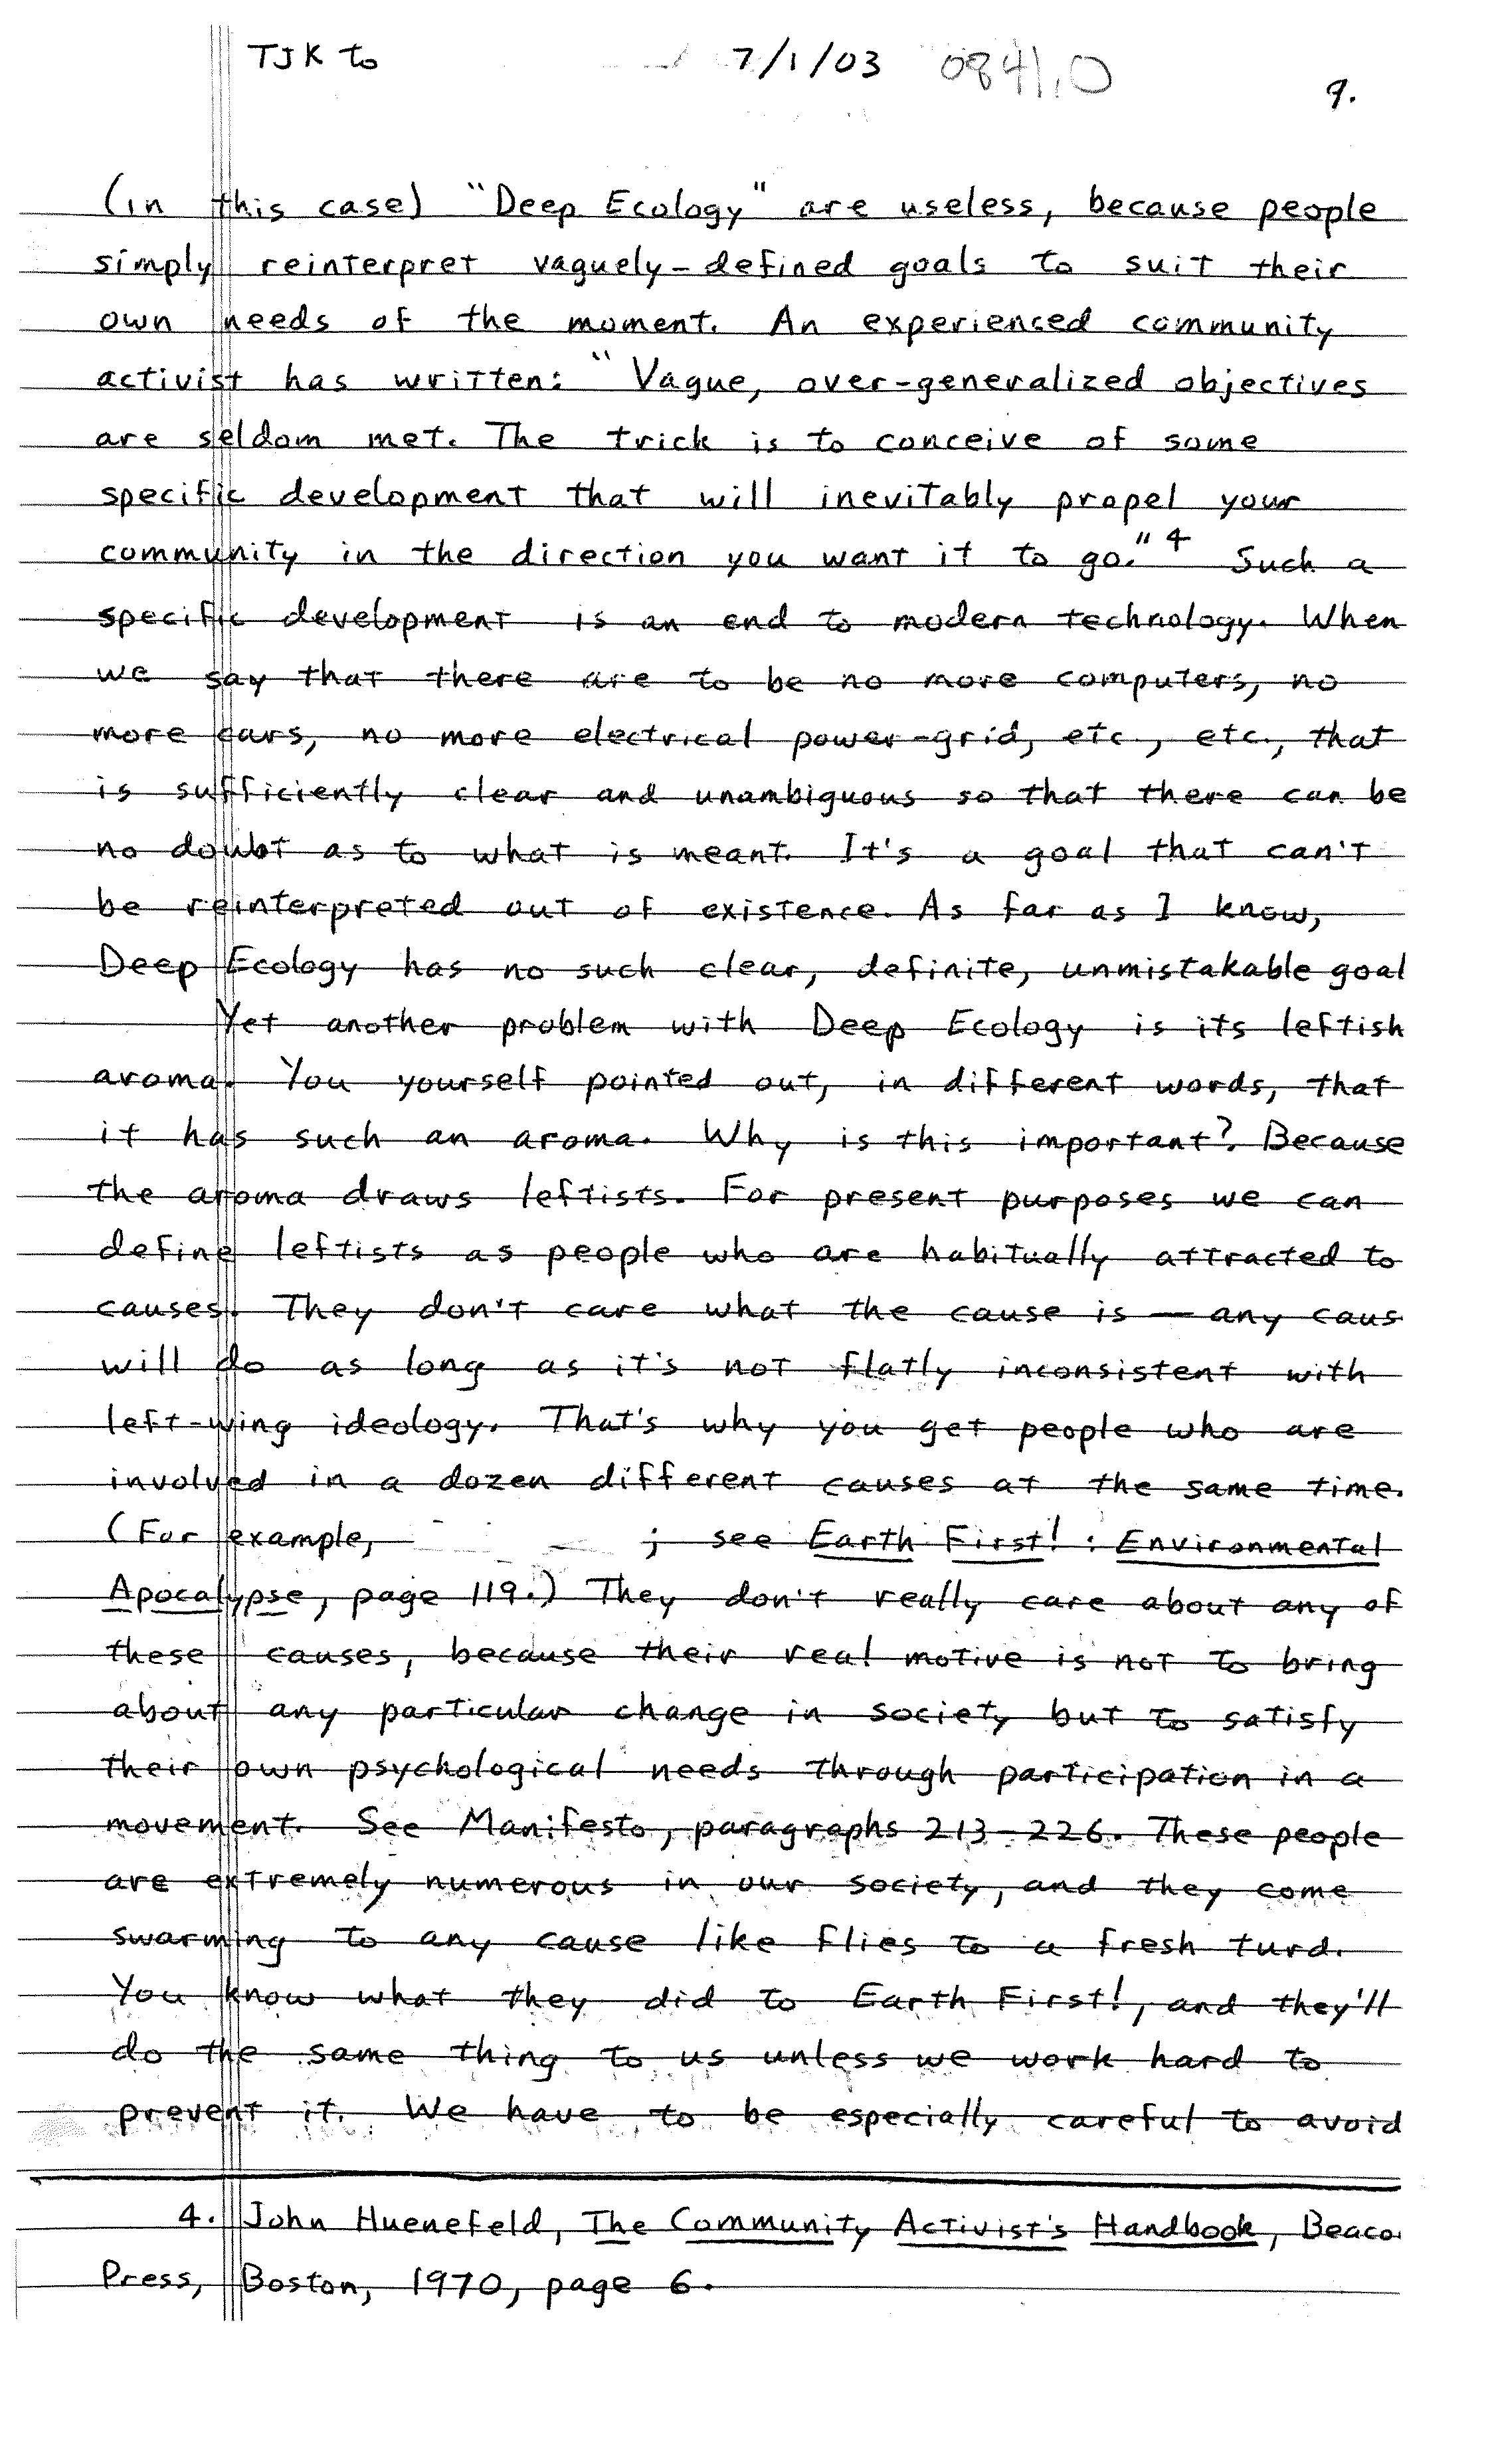 TJK to 7/1/03 0841.0
9.
(in this case) "Deep Ecology" are useless, because people
simply reinterpret vaguely-defined goals to suit their
own needs of the moment. An experienced community
activist has written: "Vague, over-generalized objectives
are seldom met. The trick is to conceive of some
specific development that will inevitably propel your
community in the direction you want it to go."4 Such a
specific development is an end to modern technology. When
we say that there are to be no more computers, no
more cars, no more electrical power-grid, etc., etc., that
is sufficiently clear and unambiguous so that there can be
no doubt as to what is meant. It's a goal that can't
be reinterpreted out of existence. As far as I know,
Deep Ecology has no such clear, definite, unmistakable goal
Yet another problem with Deep Ecology is its leftish
aroma. You yourself pointed out, in different words, that
it has such an aroma. Why is this important? Because
the aroma draws leftists. For present purposes we can
define leftists as people who are habitually attracted to
causes. They don't care what the cause is — any caus
will do as long as it's not flatly inconsistent with
left-wing ideology. That's why you get people who are
involved in a dozen different causes at the same time.
(For example, ; see Earth First!: Environmental
Apocalypse, page 119.) They don't really care about any of
these causes, because their real motive is not to bring
about any particular change in society but to satisfy
their own psychological needs through participation in a
movement. See Manifesto, paragraphs 213-226. These people
are extremely numerous in our society, and they come
swarming to any cause like flies to a fresh turd.
You know what they did to Earth First!, and they'll
do the same thing to us unless we work hard to
prevent it. We have to be especially careful to avoid
4. John Huenefeld, The Community Activist's Handbook, Beaco
Press, Boston, 1970, page 6.